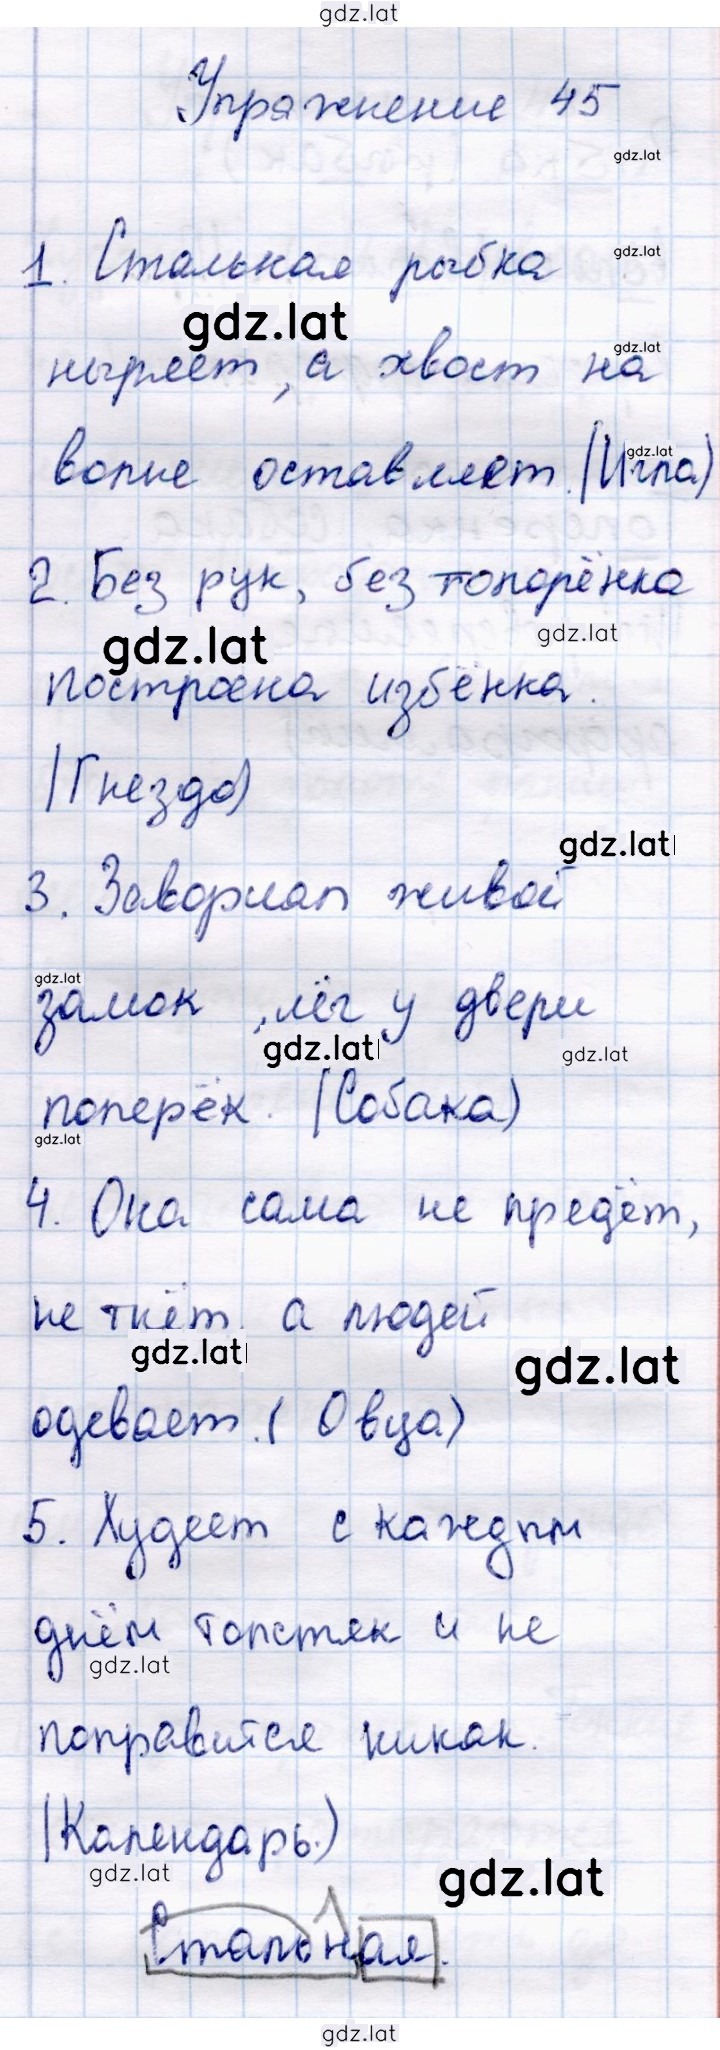 gdz.lat
Упражнение 45
gdz.lat
1. Стальная рыбка
gdz.lat
gdz.lat
ныряет, а хвост на
gdz.lat
волне оставляет. (Игла)
gdz.lat
2. Без рук, без топорёнка
gdz.lat
gdz.lat
построена избёнка.
(Гнездо)
gdz.lat
3. Заворчал живой
gdz.lat
замок, лёг у двери
gdz.lat
gdz.lat
поперёк. (Собака)
gdz.lat
4. Она сама не предёт,
не ткёт, а людей
gdz.lat
gdz.lat
одевает. (Овца)
5. Худеет с каждым
днём толстяк и не
gdz.lat
поправится никак.
(Календарь.)
gdz.lat
gdz.lat
Стальная.
gdz.lat